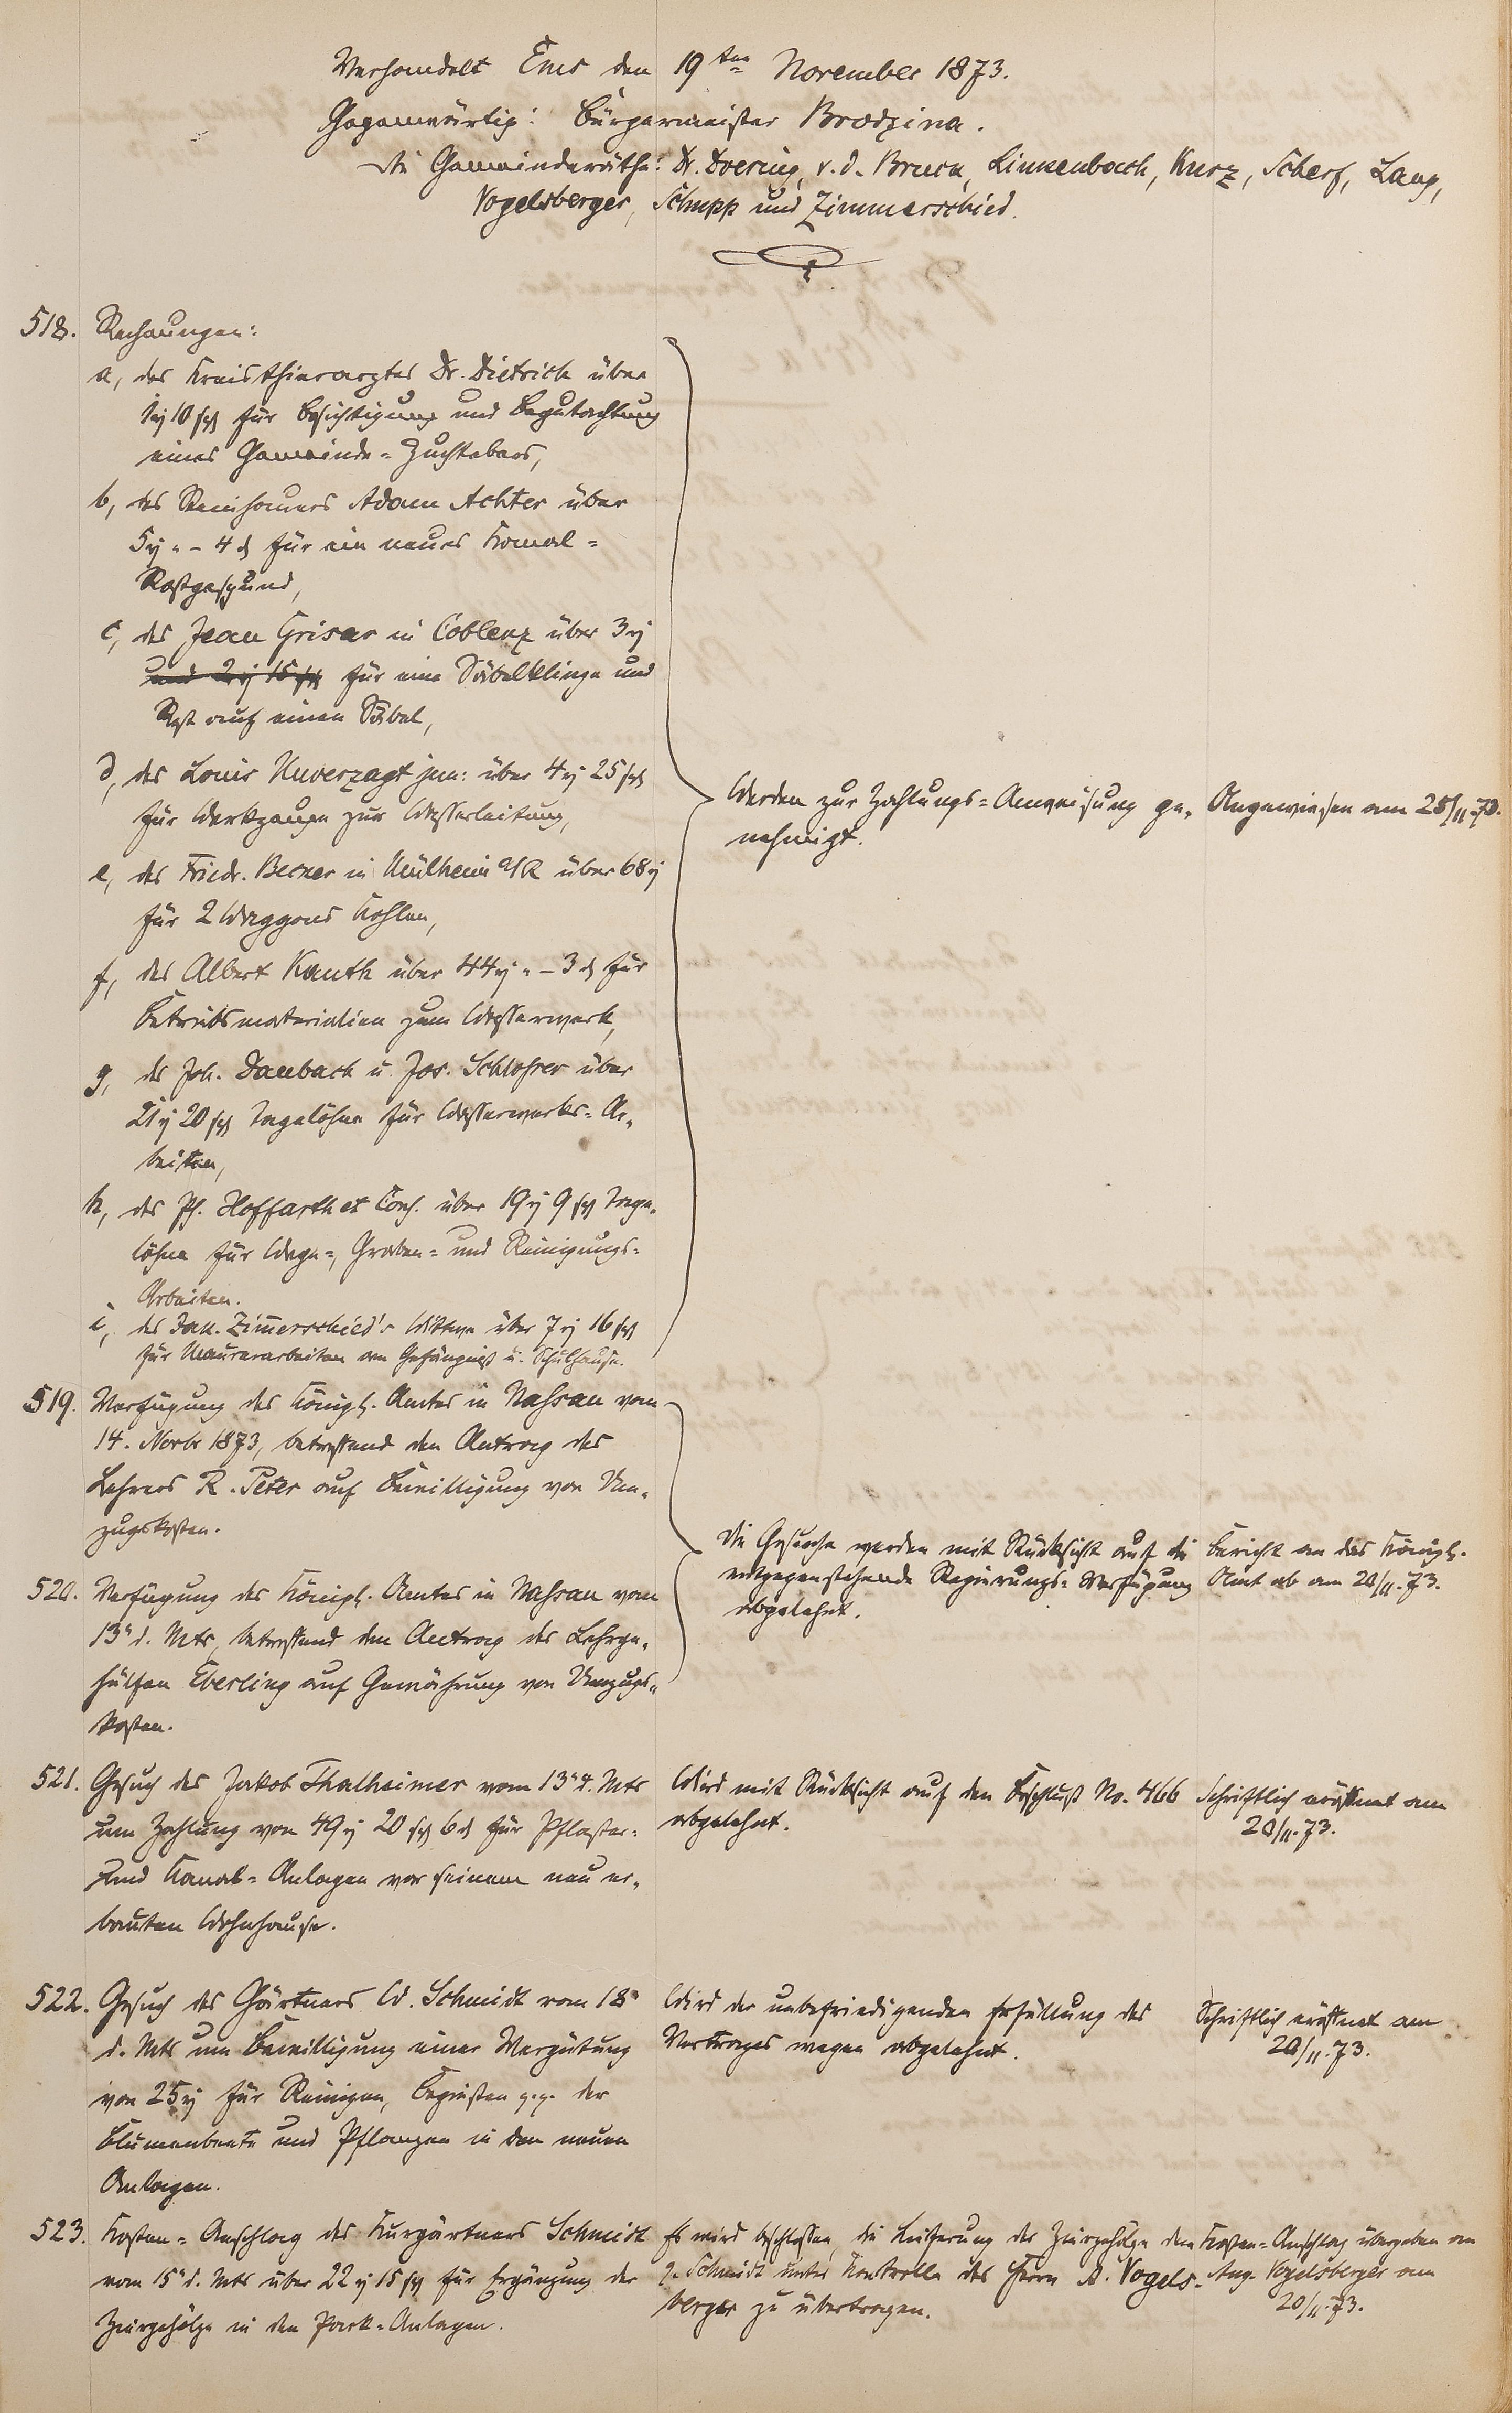 Verhandelt Ems den 19ten November 1873.
Gegenwärtig: Bürgermeister Brodzina.
die Gemeinderäthe: Dr. Doering, v. d. Bruck, Linkenbach, Kurz, Scherf, Lang,
Vogelsberger, Schupp und Zimmerschied.
518. Rechnungen:
a, des Kreisthierarztes Dr. Dietrich über
10 für Besichtigung und Begutachtung
eines Gemeinde-Zuchtebers,
b, des Steinhauers Adam Achter über
5 " - 4 für ein neues Kanal-
Rostgespund,
c, des Jean Grisar in Coblenz über 3
und 2 15 für eine Säbelklinge und
Rest auf einen Säbel,
d, des Louis Unverzagt jun: über 4 25
für Werkzeuge zur Wasserleitung,
e, des Friedr. Becker in Mülheim a/R über 68
für 2 Waggons Kohlen,
f, des Albert Kauth über 44 " - 3 für
Betriebsmaterialien zum Wasserwerk,
g, des Joh. Daubach u Jos. Schlosser über
21 20 Tagelöhne für Wasserwerks-Ar-
beiten,
h, des Ph. Hoffarth et Cons. über 19 9 Tage-
löhne für Wege-, Graben- und Reinigungs-
Arbeiten.
i, des Jak. Zimerschied's Wittwe über 7 16
für Maurerarbeiten am Gefängniß u. Schulhause.
Werden zur Zahlungs-Anweisung ge-
nehmigt.
Angewiesen am 25/11.73.
519. Verfügung des Königl. Amtes in Nassau vom
14. Novbr 1873, betreffend den Antrag des
Lehrers R. Peter auf Bewilligung von Um-
zugskosten.
520. Verfügung des Königl. Amtes in Nassau vom
13" d. Mts, betreffend den Antrag des Lehrge-
hülfen Eberling auf Gewährung von Umzugs-
kosten.
Die Gesuche werden mit Rücksicht auf die
entgegenstehende Regierungs-Verfügung
abgelehnt.
Bericht an das Königl.
Amt ab am 20/11.73.
521. Gesuch des Jakob Thalheimer vom 13" d. Mts
um Zahlung von 49 20 6 für Pflaster-
und Kanal-Anlagen vor seinem neu er-
bauten Wohnhause.
Wird mit Rücksicht auf den Beschluß No. 466
abgelehnt.
Schriftlich eröffnet am
20/11.73.
522. Gesuch des Gärtners W. Schmidt vom 18"
d. Mts um Bewilligung einer Vergütung
von 25 für Reinigen, Begießen p.p. der
Blumenbeete und Pflanzen in den neuen
Anlagen.
Wird der unbefriedigenden Erfüllung des
Vertrages wegen abgelehnt.
Schriftlich eröffnet am
20/11.73.
523. Kosten-Anschlag des Kurgärtners Schmidt
vom 15" d. Mts über 22 15 für Ergänzung der
Ziergehölze in den Park-Anlagen.
Es wird beschlossen, die Lieferung der Ziergehölze dem
p. Schmidt unter Kontrolle des Herrn A. Vogels-
berger zu übertragen.
Kosten-Anschlag übergeben an
Aug. Vogelsberger am
20/11.73.